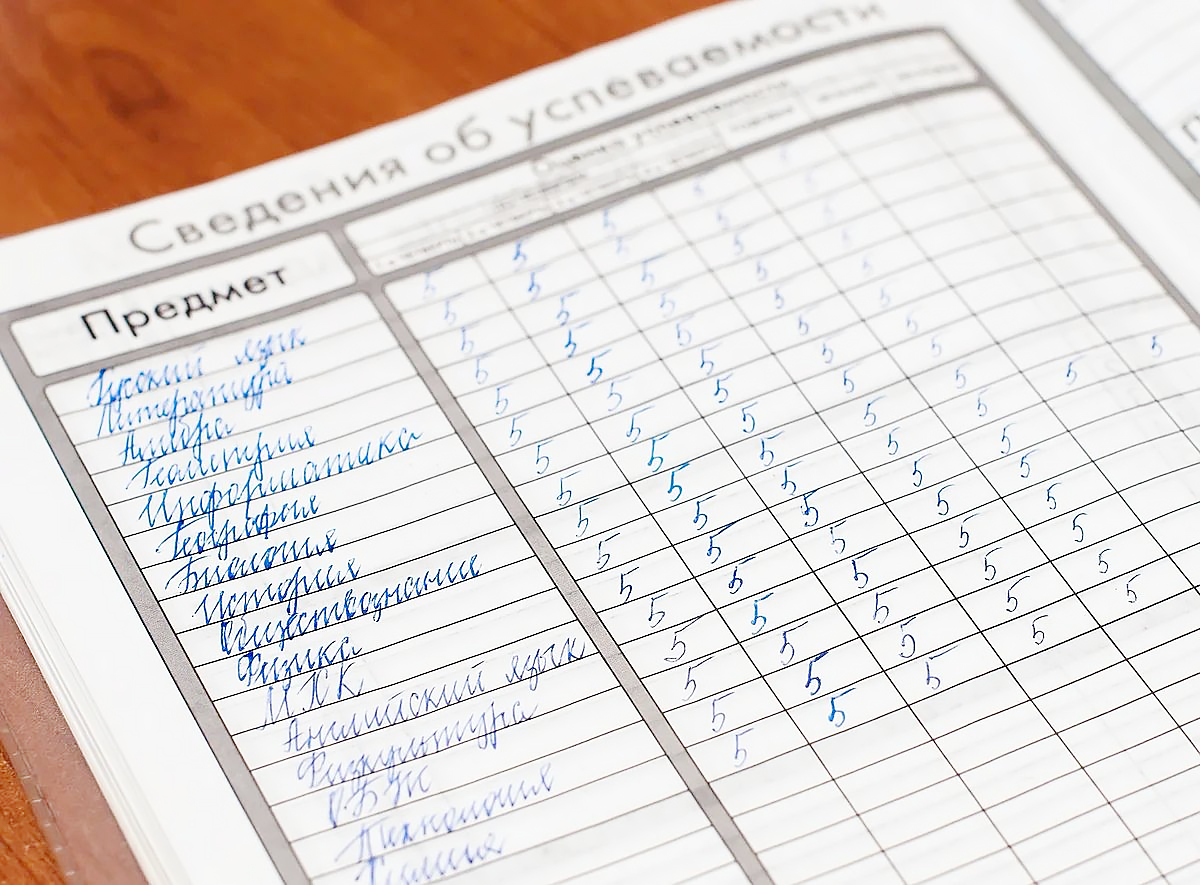 Сведения об успеваемости
Предмет
Русский язык 5 5 5 5 5
Литература 5 5 5 5 5
Алгебра 5 5 5 5 5
Геометрия 5 5 5 5 5
Информатика 5 5 5 5 5
География 5 5 5 5 5
Биология 5 5 5 5 5
История 5 5 5 5 5
Обществознание 5 5 5 5 5
Физика 5 5 5 5 5
МХК 5 5 5 5 5
Английский язык 5 5 5 5 5
Физкультура 5 5 5 5 5
ОБЖ 5 5 5 5 5
Технология 5 5 5 5
Химия 5 5 5